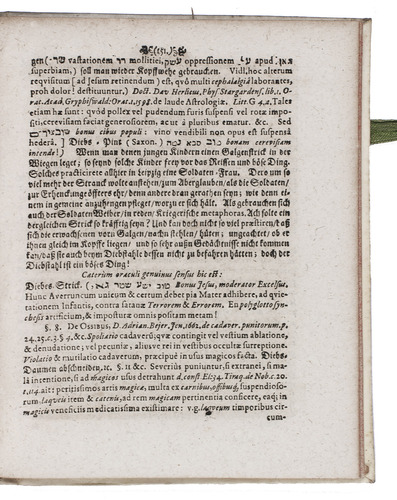 (151.)
gen (שרי vastationem רר mollitiei, עשק oppressionem על apud גאון
superbiam,) soll man wieder Kopffwehe gebrauchen. Vidi, hoc alterum
requisitum [ad Jesum retinendum] est, quô multi cephalalgiâ laborantes,
proh dolor! destituuntur.) Doct. Dav Herlicius, Phys. Stargardens. lib. 1. O-
rat. Acad. Gryphiswald: Orat. 1. 1598. de laude Astrologiæ. Litt. G 4. a. Tales
etiam hæ sunt: quôd pollex vel pudendum furis suspensi vel rotæ impo-
siti; cerevisiam faciat generosiorem, ac ut â pluribus ematur, &c. Sed
bonus cibus populi: vino vendibili non opus est suspensâ
hederâ.] Diebs - Pint (Saxon.) טוב סבא נמה bonam cerevisiam
intende!) Wenn man denen jungen Kindern einen Galgenstrick in der
Wiegen leget; so seynd solche Kinder frey vor das Reissen und böse Ding.
Solches practicirete allhier in Leipzig eine Soldaten-Frau. Dero um so
viel mehr der Stranck wolte anstehen/zum Aberglauben/als die Soldaten/
zur Erhenckunge öffters ehr/denn andere dran gerathen seyn; wie denn ei-
nem in gemeine anzuhengen pfleget/worzu er sich hält. Als gebrauchen sich
auch der Soldaten Weiber/in reden/Kriegerische metaphoras. Ach solte ein
dergleichen Strick so kräfftig seyn? Und kan doch nicht so viel præstiren/daß
sich die erwachsenen vorn Galgen/nachn stehlen/hüten; ungeachtet/ ob er
ihnen gleich im Kopffe liegen/ und so sehr aussn Gedächtnisse nicht kommen
kan/daß sie auch beym Diebstahle dessen nicht zu befahren hätten; doch der
Diebstahl ist ein böses Ding!
Cæterùm oraculi genuinus sensus hic est:
Diebs-Strick. (טוב ישע שטר גאו,) Bonus Jesus, moderator Excelsus.
Hunc Averruncum unicum & certum debet pia Mater adhibere, ad qvie-
tationem Infantis, contra fatuæ Terrorem & Errorem. En polyglotto syn-
chesis artificium, & impostoræ omnis positam metam!
§. 8. De Ossibus, D. Adrian. Bejer, Jen. 1662. de cadaver. punitorum. p.
24. 25. c. 3. §. 4. &c. Spoliatio cadaverû; qvæ contingit vel vestium ablatione,
& denudatione; vel pecuniæ, aliusve rei in vestibus occultæ surreptione.
Violatio & mutilatio cadaverum, præcipuè in usus magicos facta. Diebs-
Daumen abschneiden, ic. §. 11. &c. Severiùs puniuntur, si extranei, si ma-
lâ intentione, si ad magicos usus detrahunt d. const. El: 34. Tiraq. de Nob. c. 20.
n. 114. ait: peritissimos artis magicæ, multa ex carnibus, ossibusq; suspendioso-
rum laqveis item & catenis, ad rem magicam pertinentia conficere, eaq; in
magicis veneficiis medicatissima existimare: v. g. laqveum timporibus cir-
cum-